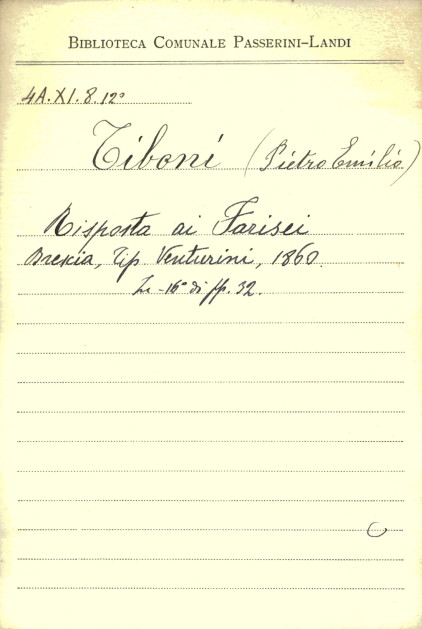 BIBLIOTECA COMUNALE PASSERINI-LANDI
4A.XI.8.12°
Tiboni (Pietro Emilio)
Risposta ai Farisei
Brescia, Tip Venturini, 1860.
In-16° di pp. 32.